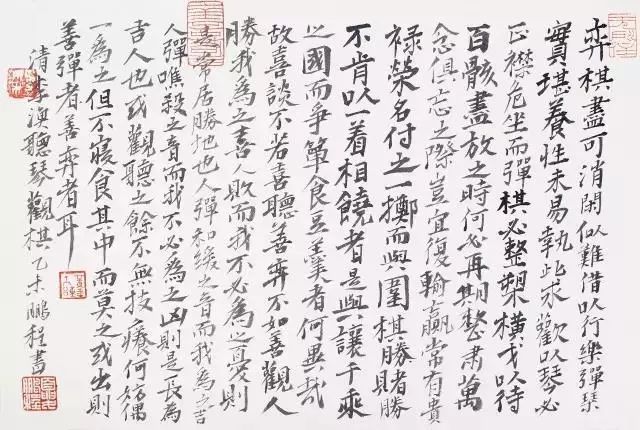 弈棋盡可消閑似難借以行樂彈琴
實堪養性未易執此求歡以琴必
正襟危坐而彈棋必整槊橫戈以待
百骸盡放之時何必再期整肅萬
念俱忘之際豈宜復輸贏常有貴
祿榮名付之一擲而與圍棋勝賭勝
不肯以一着相饒者是與讓千乘
之國而爭簞食豆羹者何異哉
故喜談不若喜聽善弈不如善觀人
勝我為之喜人敗而我不必為之憂則
是常居勝地也人彈和緩之音而我為之吉
人彈噍殺之音而我不必為之凶則是長為
吉人也或觀聽之餘不無技癢何妨偶
一為之但不寢食其中而莫之或出則
善彈者善弈者耳
清李漁聽琴觀棋乙未鵬程書